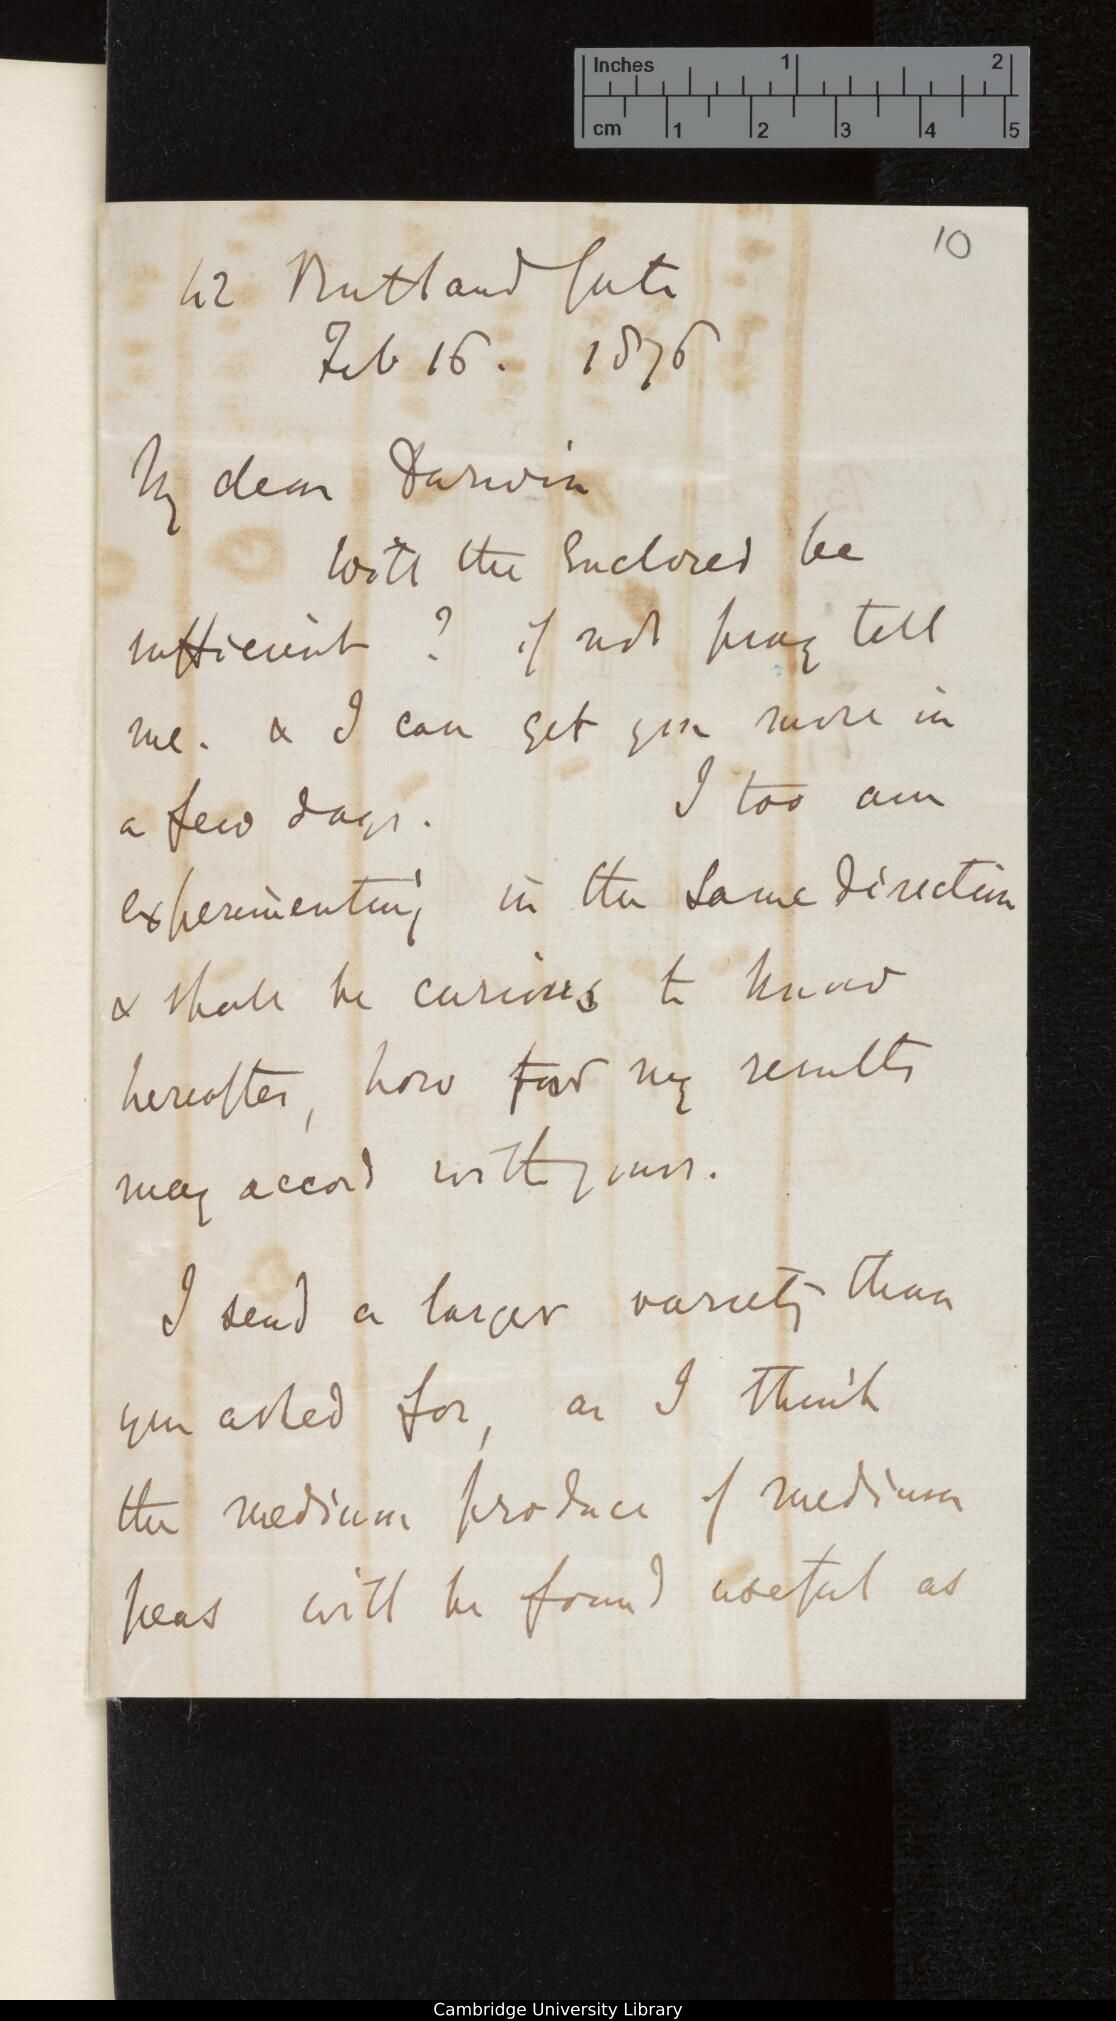 Inches 1 2
cm 1 2 3 4 5
10
42 Rutland Gate
Feb 16. 1876
My dear Darwin
Will the Enclosed be
sufficient? if not pray tell
me. & I can get you more in
a few days. I too am
experimenting in the same direction
& shall be curious to know
hereafter, how far my results
may accord with yours.
I send a larger variety than
you asked for, as I think
the medium produce of medium
peas will be found useful as
Cambridge University Library